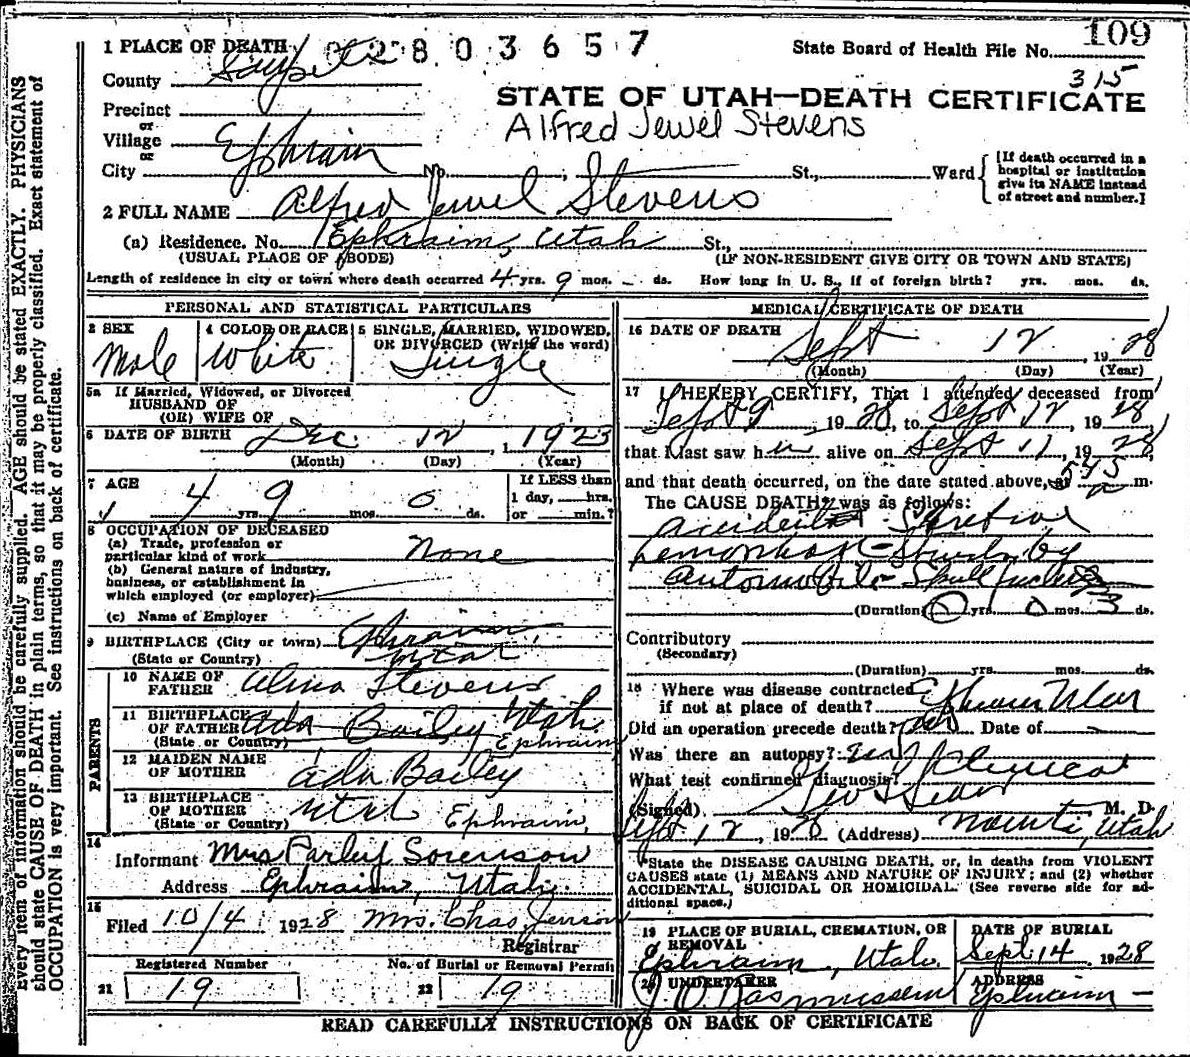 109
1 PLACE OF DEATH 2 8 0 3 6 5 7 State Board of Health File No.
County Sanpete 315
STATE OF UTAH—DEATH CERTIFICATE
Precinct
or
Village Alfred Jewel Stevens
or
City Ephraim No. ; St., Ward
[If death occurred in a
hospital or institution
give its NAME instead
of street and number.]
2 FULL NAME Alfred Jewel Stevens
(a) Residence. No. Ephraim, Utah St.,
(USUAL PLACE OF ABODE) (IF NON-RESIDENT GIVE CITY OR TOWN AND STATE)
Length of residence in city or town where death occurred 4 yrs. 9 mos. - ds. How long in U. S., if of foreign birth? yrs. mos. ds.
PERSONAL AND STATISTICAL PARTICULARS
3 SEX
Male
4 COLOR OR RACE
White
5 SINGLE, MARRIED, WIDOWED,
OR DIVORCED (Write the word)
Single
5a If Married, Widowed, or Divorced
HUSBAND OF
(OR) WIFE OF
6 DATE OF BIRTH Dec. 12, 1923
(Month) (Day) (Year)
7 AGE
4 yrs. 9 mos. 0 ds.
If LESS than
1 day, hrs.
or min.?
8 OCCUPATION OF DECEASED
(a) Trade, profession or
particular kind of work None
(b) General nature of industry,
business, or establishment in
which employed (or employer)
(c) Name of Employer
9 BIRTHPLACE (City or town) Ephraim,
(State or Country) Utah
PARENTS
10 NAME OF
FATHER Alma Stevens
11 BIRTHPLACE
OF FATHER Ada Bailey Utah
(State or Country) Ephraim
12 MAIDEN NAME
OF MOTHER Ada Bailey
13 BIRTHPLACE
OF MOTHER Utah Ephraim,
(State or Country)
14
Informant Mrs Parley Sorenson
Address Ephraim, Utah.
15
Filed 10/4 1928 Mrs. Chas Jenson
Registrar
Registered Number No. of Burial or Removal Permit
21 19 22 19
MEDICAL CERTIFICATE OF DEATH
16 DATE OF DEATH
Sept 12, 1928
(Month) (Day) (Year)
17 I HEREBY CERTIFY, That I attended deceased from
Sept 9, 1928, to Sept 12, 1928,
that I last saw h im alive on Sept 11, 1928,
and that death occurred, on the date stated above, at 545 a m.
The CAUSE DEATH* was as follows:
Accident
by
Automobile Skull
(Duration) 0 yrs. 0 mos. 3 ds.
Contributory
(Secondary)
(Duration) yrs. mos. ds.
18 Where was disease contracted
if not at place of death? Ephraim Utah
Did an operation precede death? Date of -
Was there an autopsy?
What test confirmed diagnosis? Clinical
(Signed) M. D.
Sept 12, 1928 (Address) Manti, Utah
*State the DISEASE CAUSING DEATH, or, in deaths from VIOLENT
CAUSES state (1) MEANS AND NATURE OF INJURY; and (2) whether
ACCIDENTAL, SUICIDAL OR HOMICIDAL. (See reverse side for ad-
ditional space.)
19 PLACE OF BURIAL, CREMATION, OR
REMOVAL
Ephraim, Utah.
DATE OF BURIAL
Sept 14 1928
20 UNDERTAKER
Rasmussen
ADDRESS
Ephraim -
READ CAREFULLY INSTRUCTIONS ON BACK OF CERTIFICATE
Every item of information should be carefully supplied. AGE should be stated EXACTLY. PHYSICIANS
should state CAUSE OF DEATH in plain terms, so that it may be properly classified. Exact statement of
OCCUPATION is very important. See instructions on back of certificate.